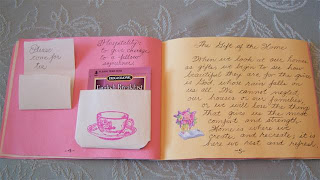 Please
come for
tea
Hospitality
is
to a fellow
English Breakfast
The Gift of the Home
When we look at our homes
as gifts, we begin to see how
beautiful they are for the giver
is God whose love fills
us all. We cannot neglect
our houses or our families,
or we will lose the thing
that gives us the most
comfort and strength.
Home is where we
create and recreate, it is
where we rest and refresh